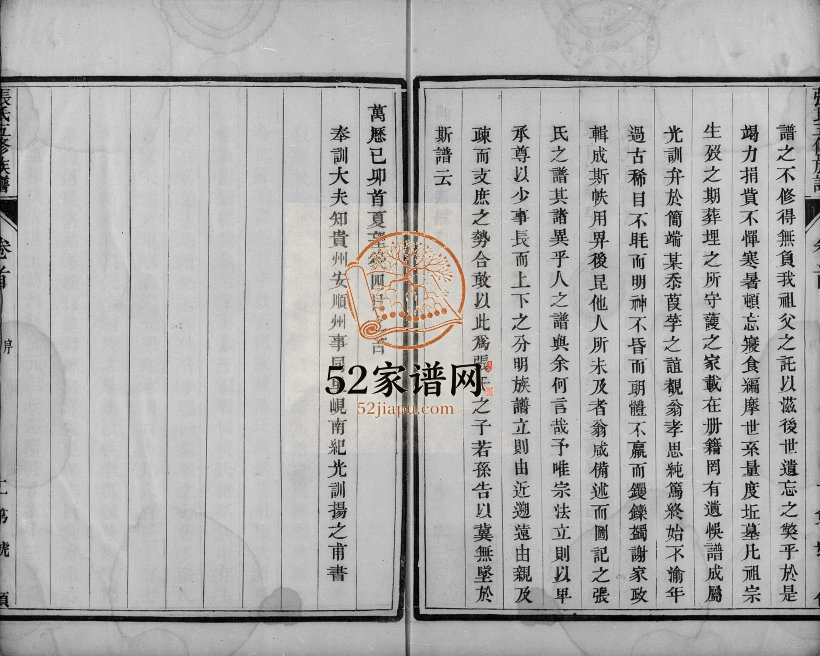 譜之不修得無負我祖父之託以滋後世遺忘之獘乎於是
竭力捐貲不憚寒暑頓忘寢食編摩世系量度坵墓凡祖宗
生歿之期葬埋之所守護之家載在册籍罔有遺悞譜成屬
光訓弁於簡端某忝葭莩之誼覩翁孝思純篤終始不渝年
過古稀目不眊而明神不昏而朗體不羸而鑁鑠蠲謝家政
輯成斯帙用畀後昆他人所未及者翁咸備述而圖記之張
氏之譜其諸異乎人之譜與余何言哉予唯宗法立則以卑
承尊以少事長而上下之分明族譜立則由近遡遠由親及
疎而支庶之勢合敢以此為張氏之子若孫告以冀無墜於
斯譜云
萬歷己卯首夏望
奉訓大夫知貴州安順州事同
峴南紀光訓揚之甫書
張氏五修族譜
卷首
序
52家谱网
52jiapu.com